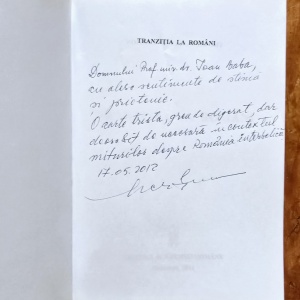 TRANZIȚIA LA ROMÂNI
Domnului Prof univ. dr. Ioan Baba,
cu alese sentimente de stimă
și prietenie.
O carte tristă, grea de digerat, dar
deosebit de necesară în contextul
miturilor despre România interbelică
17.05.2012